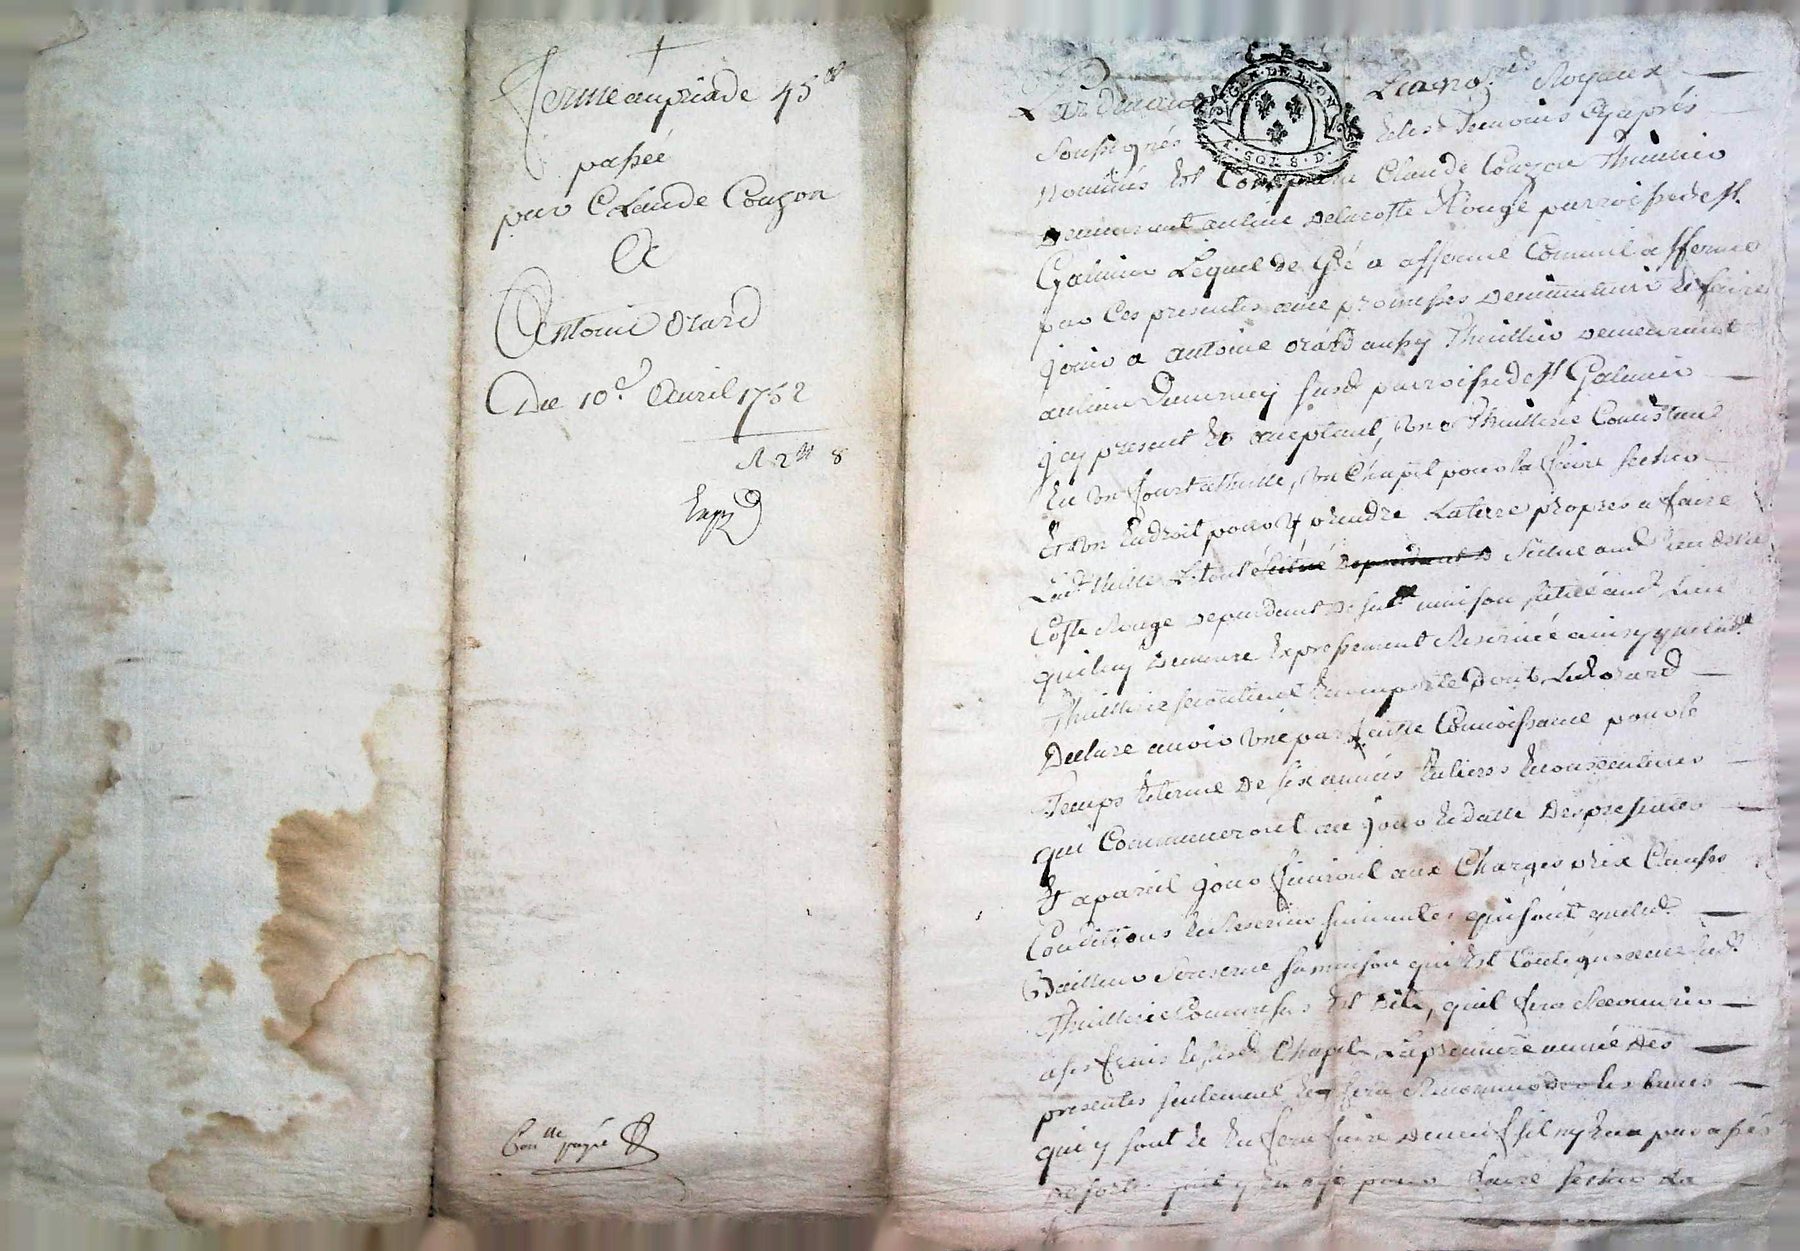 Ferme au prix de 45 ##
passée
par Claude Couzon
A
Antoine Orard
Du 10.e Avril 1752
R 2 ## 8
Exp.é
Con.lle payé
Par devant Les no.res Royaux
GEN. DE LYON
4. SOLS 8. D.
soussignés et les Temoins Cy après
Nommés Est Comparu Claude Couzon Thuillier
Demeurant au lieu Delacoste Rouge parroisse de St
Galmier Lequel de Gré a affermé Comme il afferme
par Ces presentes avec promesses De maintenir et faire
jouir a antoine orard aussy Thuillier Demeurant
au lieu susd parroisse de St Galmier
jcy present et acceptant, une Thuillerie Consistant
En un four a thuille, un Chapil pour la faire secher
Et un Endroit pour y prendre La terre propre a faire
Lad. thuille Le tout située dependante Scitué aud. lieu de la
Coste Rouge dependant de sad. maison située aud. Lieu
qui luy Demeure Expressement Reservée ainsy que lad.
Thuillerie se contient Et comporte dont Led. orard
Declare avoir une parfaitte Connoissance pour le
Temps et terme De six années Entieres et consecutives
qui Commenceront au jour et datte Des presentes
Et a pareil jour finiront aux Charges prix Clauses
Conditions et Reserves suivantes qui sont que led.
Bailleur se reserve sa maison qui est Contigue avec lad.
Thuillerie Comme sus Est dite, qu'il fera Recouvrir
a ses frais le susd. Chapil La premiere année des
presentes seulement et fera Racommoder les bancs
qui y sont et En fera faire de neuf s'il ny En a pas assés
De sorte qu'il y En aye pour faire secher La